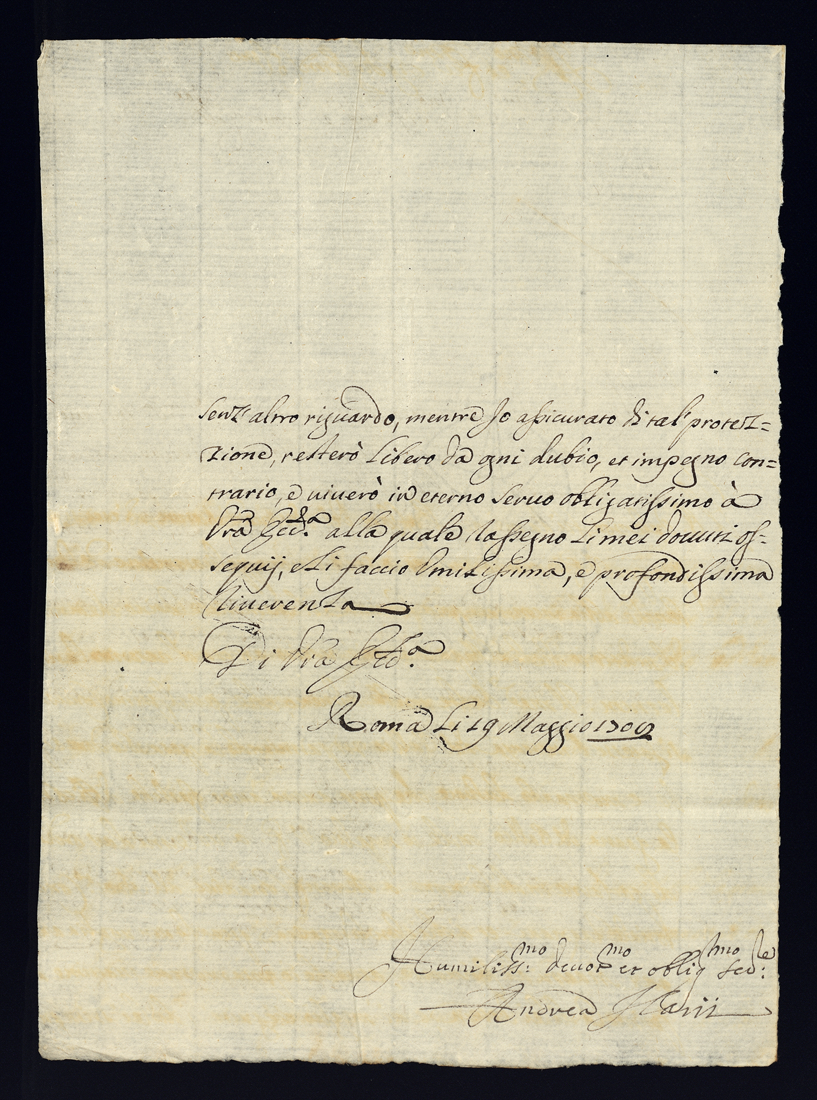 senz'altro riguardo, mentre Jo assicurato di tal' protez=
zione, resterò libero da ogni dubio, et impegno con=
trario, e viverò in eterno servo obligatissimo à
Vrã Ecc.ᵃ alla quale rassegno li miei dovuti os=
sequij, e li faccio Umilissima, e profondissima
riverenza
Di Vrã Ecc.ᵃ
Roma Li 19 Maggio
Humiliss:ᵐᵒ devot:ᵐᵒ et oblig:ᵐᵒ
Andrea